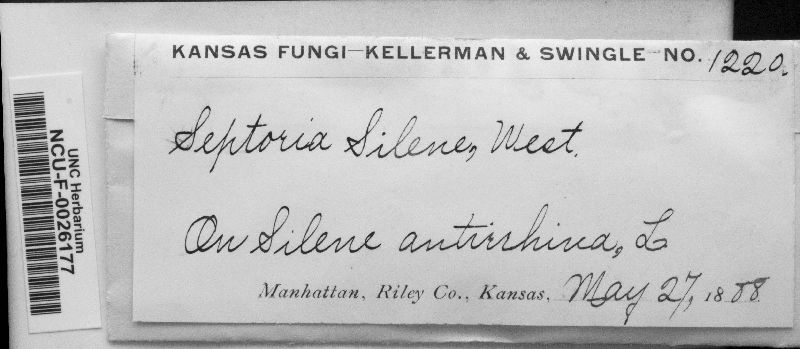 KANSAS FUNGI—KELLERMAN & SWINGLE—NO. 1220.
Septoria Silene, West.
On Silene antirrhina, L
Manhattan, Riley Co., Kansas, May 27, 1888
UNC Herbarium
NCU-F-0026177